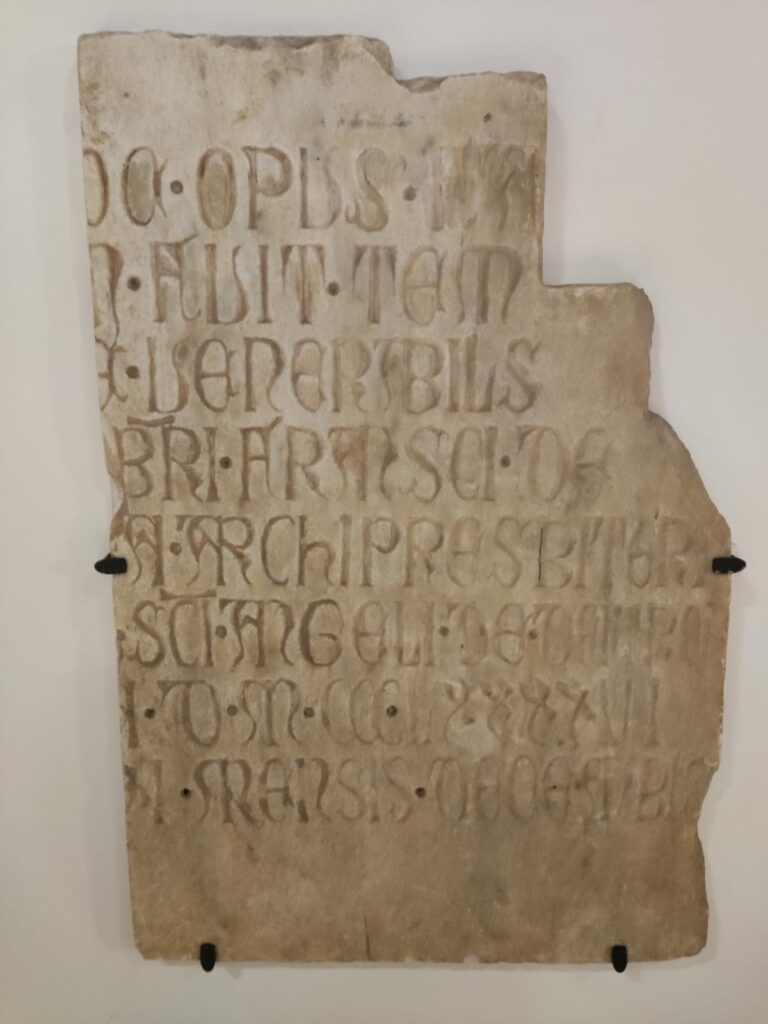 OC · OPUS ·
· AUIT · TEM
· UENERABILS
BRI · FRANSCI · DE
A · ARCHIPRESBITERI
SCI · ANGELI · DE
· D · M · CCCLXXXXVI
· MENSIS · DECEMBR